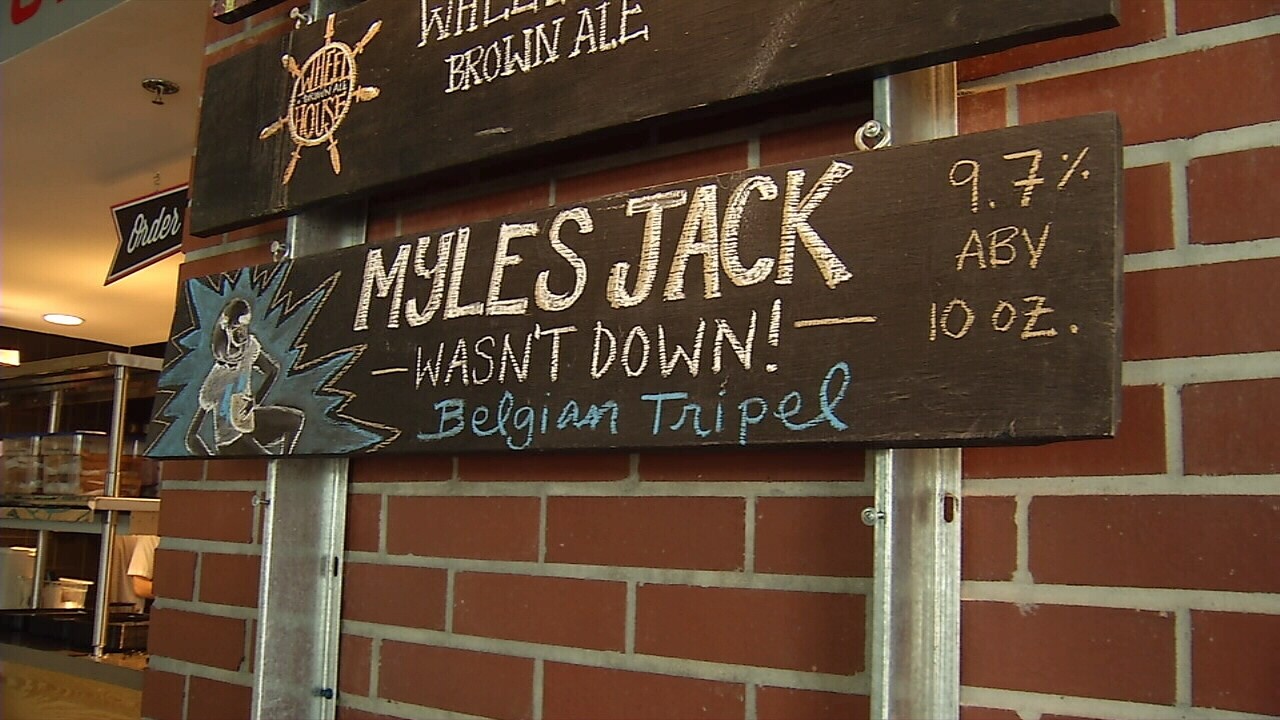 BROWN ALE
WHEEL
BROWN ALE
HOUSE
Order
MYLES JACK
—WASN'T DOWN!—
Belgian Tripel
9.7%
ABV
10 OZ.